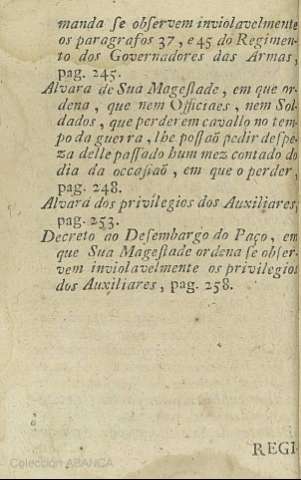 manda ſe obſervem inviolavelmente
os paragrafos 37, e 45 do Regimen-
to dos Governadores das Armas,
pag. 245.
Alvara de Sua Mageſtade, em que or-
dena, que nem Officiaes, nem Sol-
dados, que perderem cavallo no tem-
po da guerra, lhe poſſaõ pedir deſpe-
za delle paſſado hum mez contado do
dia da occaſiaõ, em que o perder,
pag. 248.
Alvara dos privilegios dos Auxiliares,
pag. 253.
Decreto ao Deſembargo do Paço, em
que Sua Mageſtade ordena ſe obſer-
vem inviolavelmente os privilegios
dos Auxiliares, pag. 258.
REGI-
Colección ABANCA